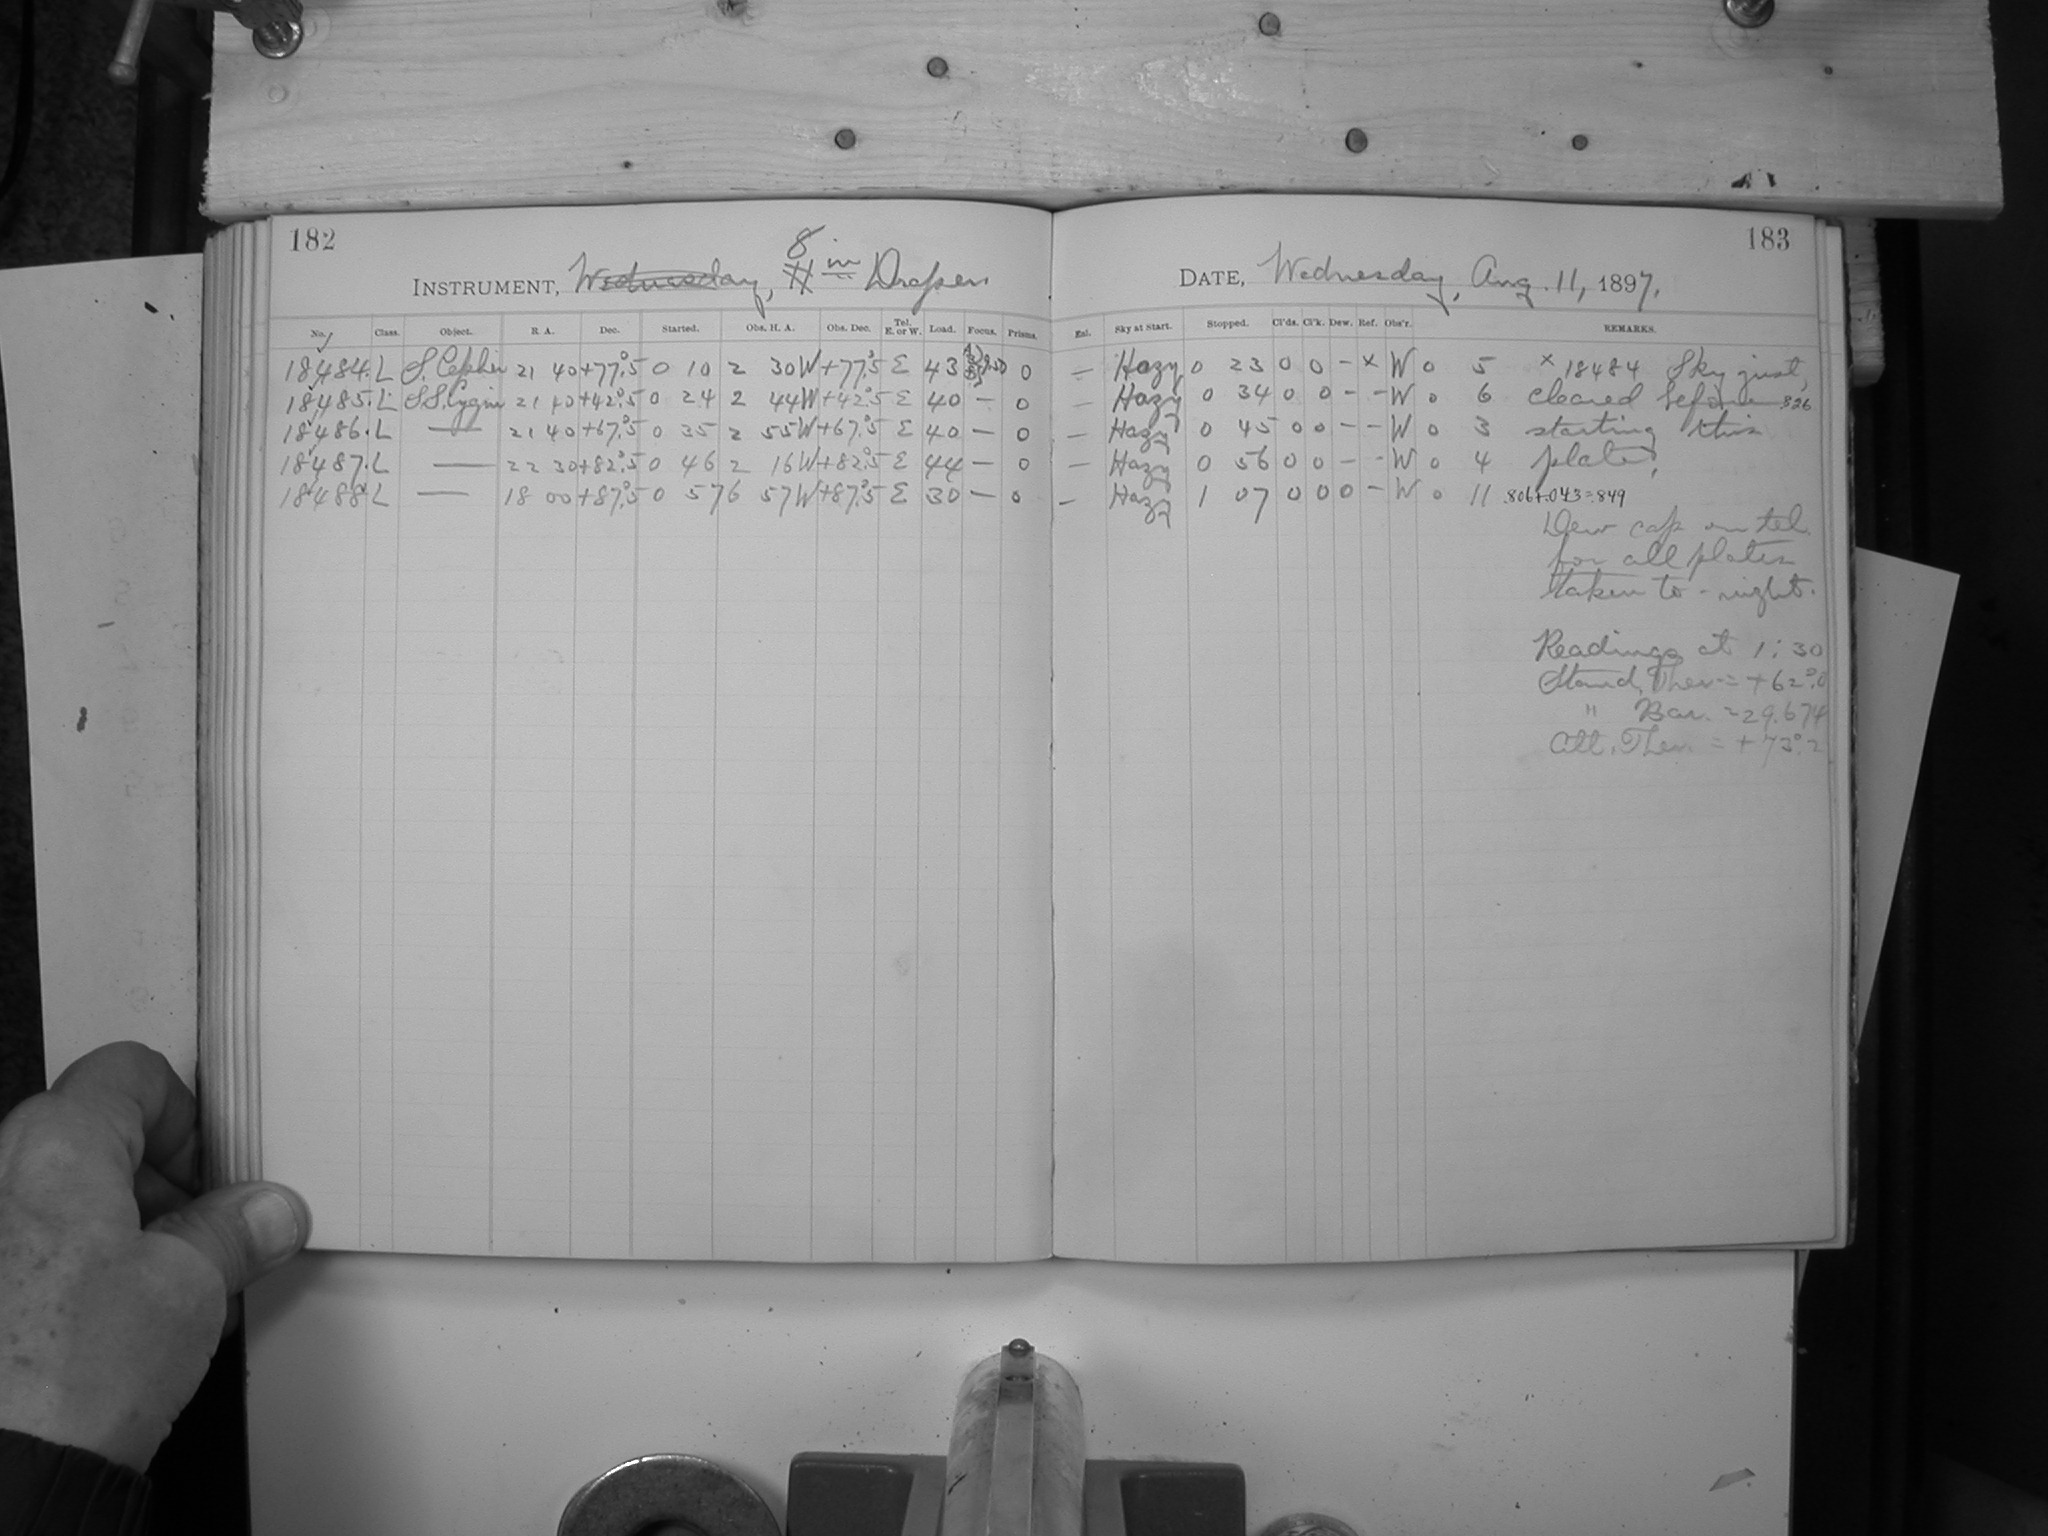 182
183
INSTRUMENT, Wednesday, 8 in Draper
DATE, Wednesday, Aug. 11, 1897.
No. Class. Object. R. A. Dec. Started. Obs. H. A. Obs. Dec. Tel. E. or W. Load. Focus. Prisms. Exl. Sky at Start. Stopped. Cl'ds. Cl'k. Dew. Ref. Obs'r. REMARKS.
18484. L S. Cephei 21 40 +77°.5 0 10 2 30W +77°.5 E 43 0 — Hazy 0 23 0 0 - x W 0 5 x 18484 Sky just
18485. L SS. Cygni 21 40 +42°.5 0 24 2 44W +42°.5 E 40 — 0 — Hazy 0 34 0 0 - - W 0 6 cleared before 326
18486. L — 21 40 +67°.5 0 35 2 55W +67°.5 E 40 — 0 — Hazy 0 45 0 0 - - W 0 3 starting this
18487. L — 22 30 +82°.5 0 46 2 16W +82°.5 E 44 — 0 — Hazy 0 56 0 0 - - W 0 4 plate.
18488 L — 18 00 +87°.5 0 57 6 57W +87°.5 E 30 — 0 — Hazy 1 07 0 0 0 - W 0 11 .806+.043=.849
Dew cap on tel.
for all plates
taken to-night.
Readings at 1:30
Stand. Ther = +62°.0
" Bar. = 29.674
Att. Ther. = +73°.2